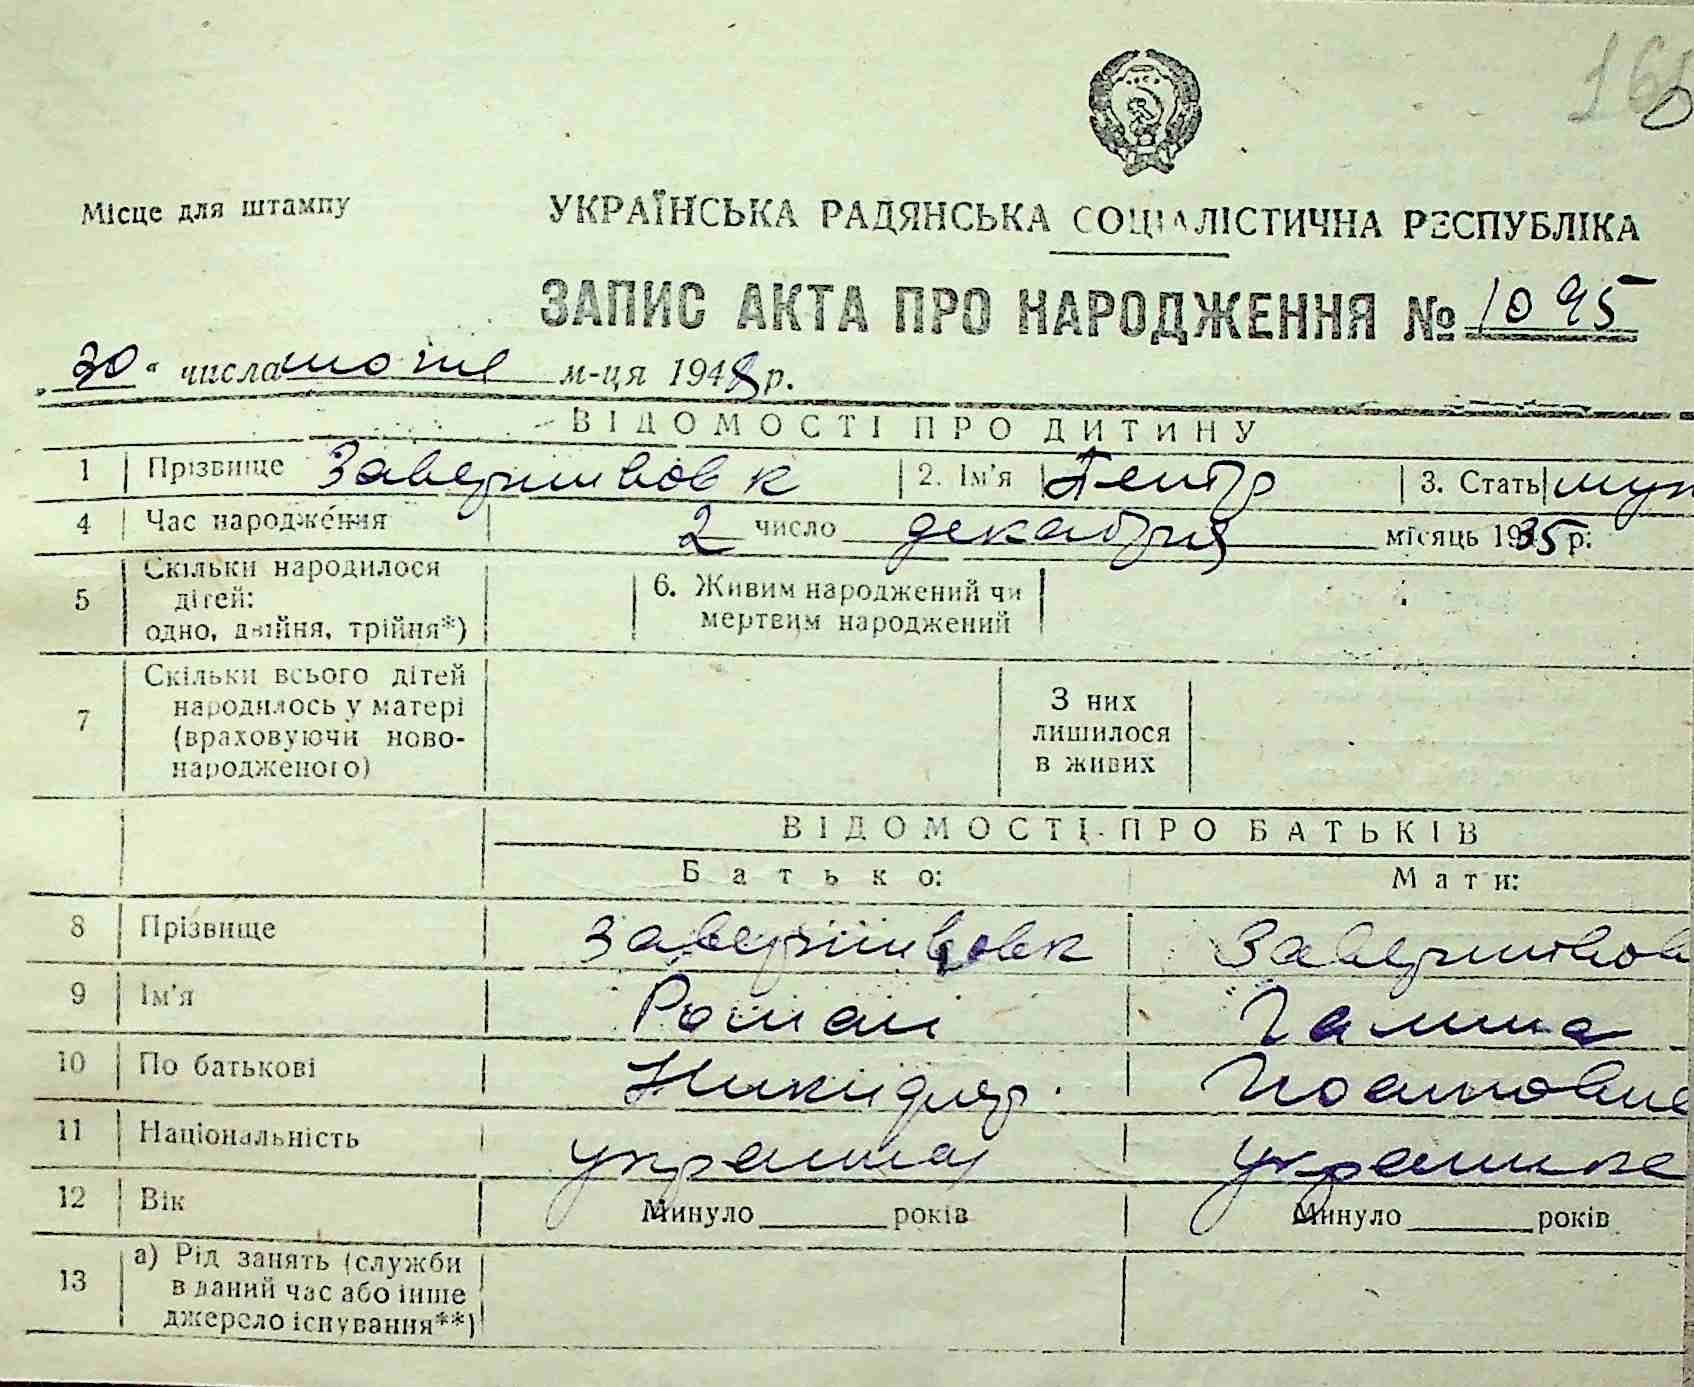 160
Місце для штампу
УКРАЇНСЬКА РАДЯНСЬКА СОЦІАЛІСТИЧНА РЕСПУБЛІКА
ЗАПИС АКТА ПРО НАРОДЖЕННЯ № 1095
„30“ числа июня м-ця 1948 р.
ВІДОМОСТІ ПРО ДИТИНУ
1 Прізвище Завершвовк 2. Ім'я Петр 3. Стать муж
4 Час народження 2 число декабря місяць 1935 р.
5 Скільки народилося дітей: одно, двійня, трійня*) 6. Живим народжений чи мертвим народжений
7 Скільки всього дітей народилось у матері (враховуючи новонародженого) З них лишилося в живих
ВІДОМОСТІ ПРО БАТЬКІВ
Батько: Мати:
8 Прізвище
9 Ім'я Роман Галина
10 По батькові Никифор.
11 Національність украинец украинка
12 Вік Минуло років Минуло років
13 а) Рід занять (служби в даний час або інше джерело існування**)